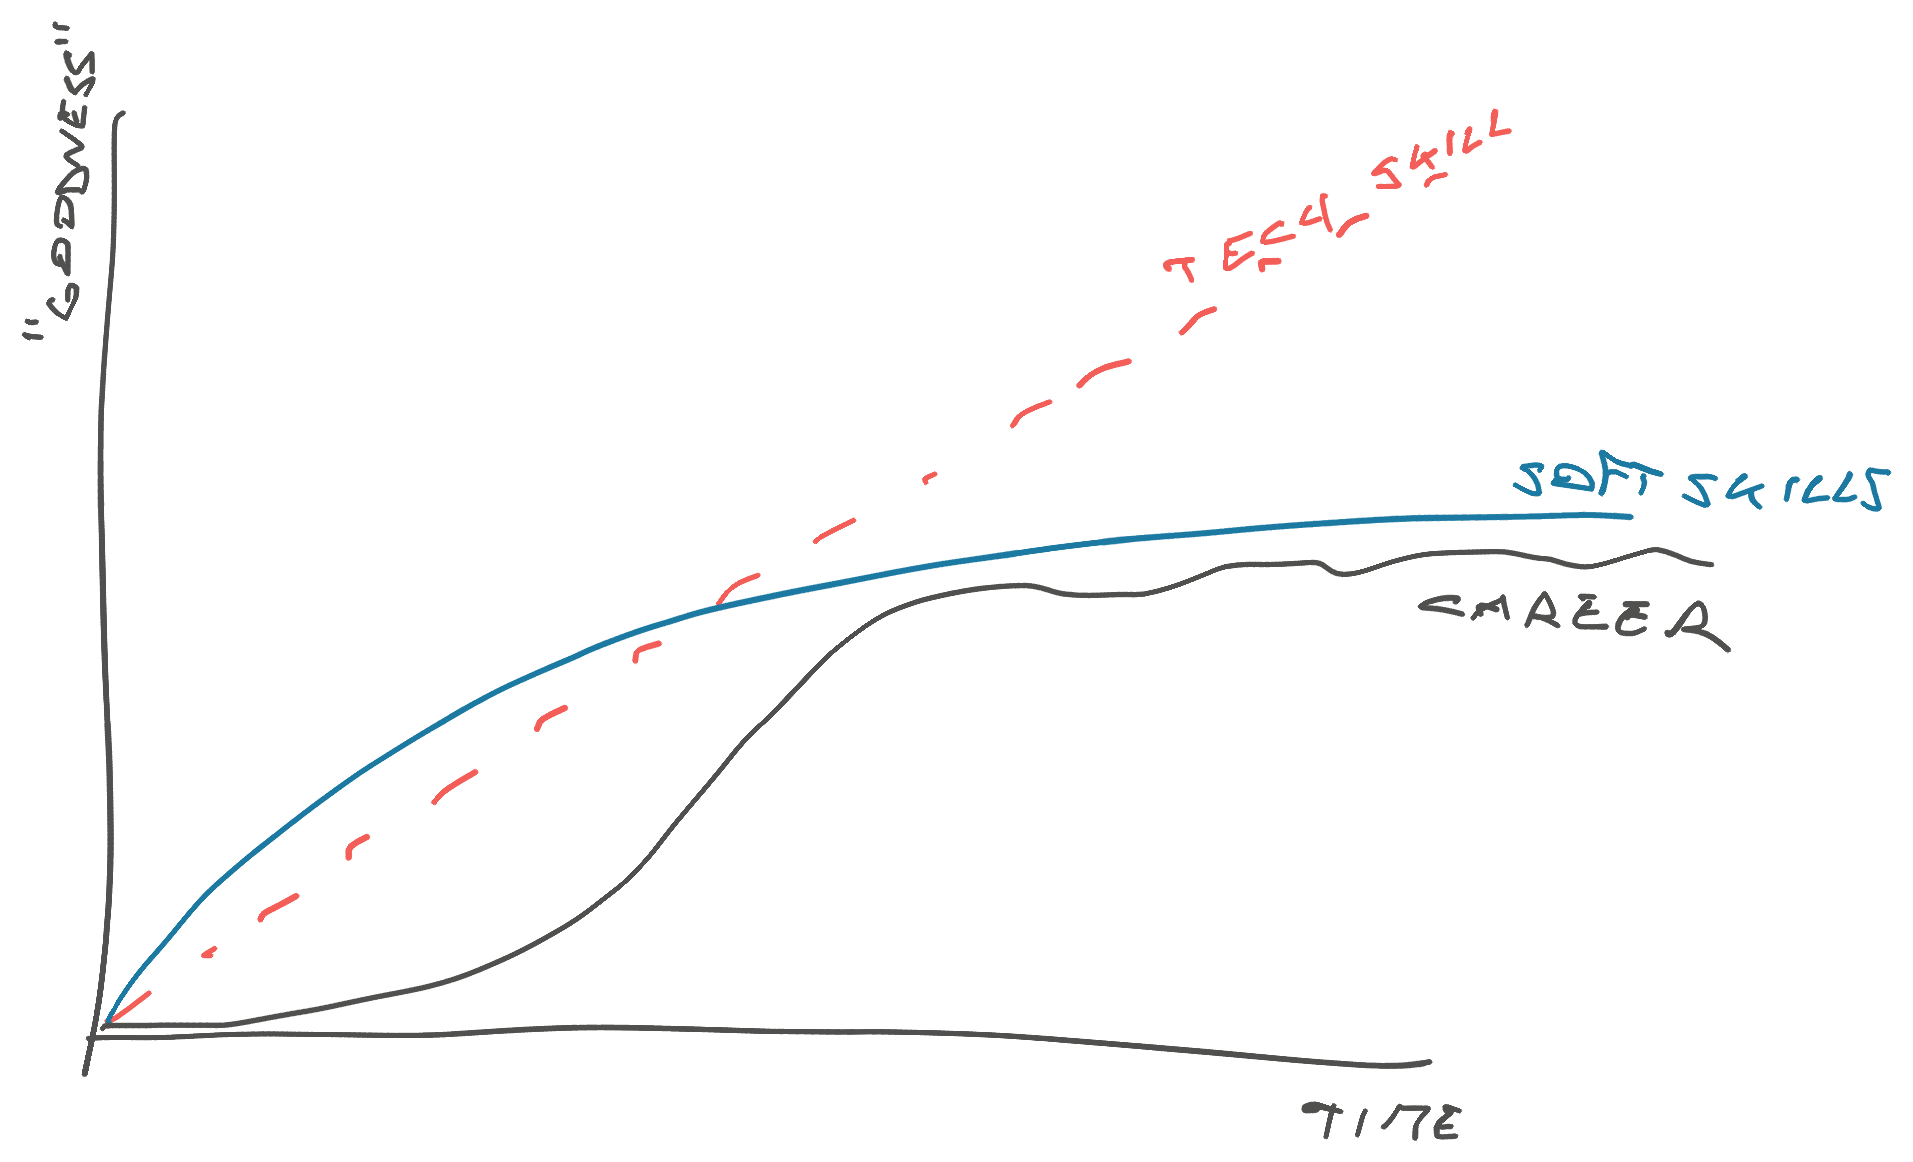 "GOODNESS"
TECH SKILL
SOFT SKILLS
CAREER
TIME